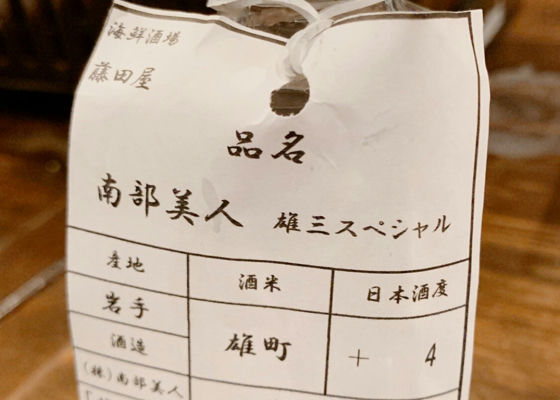 海鮮酒場
藤田屋
品名
南部美人 雄三スペシャル
産地 酒米 日本酒度
岩手 雄町 + 4
酒造
(株)南部美人